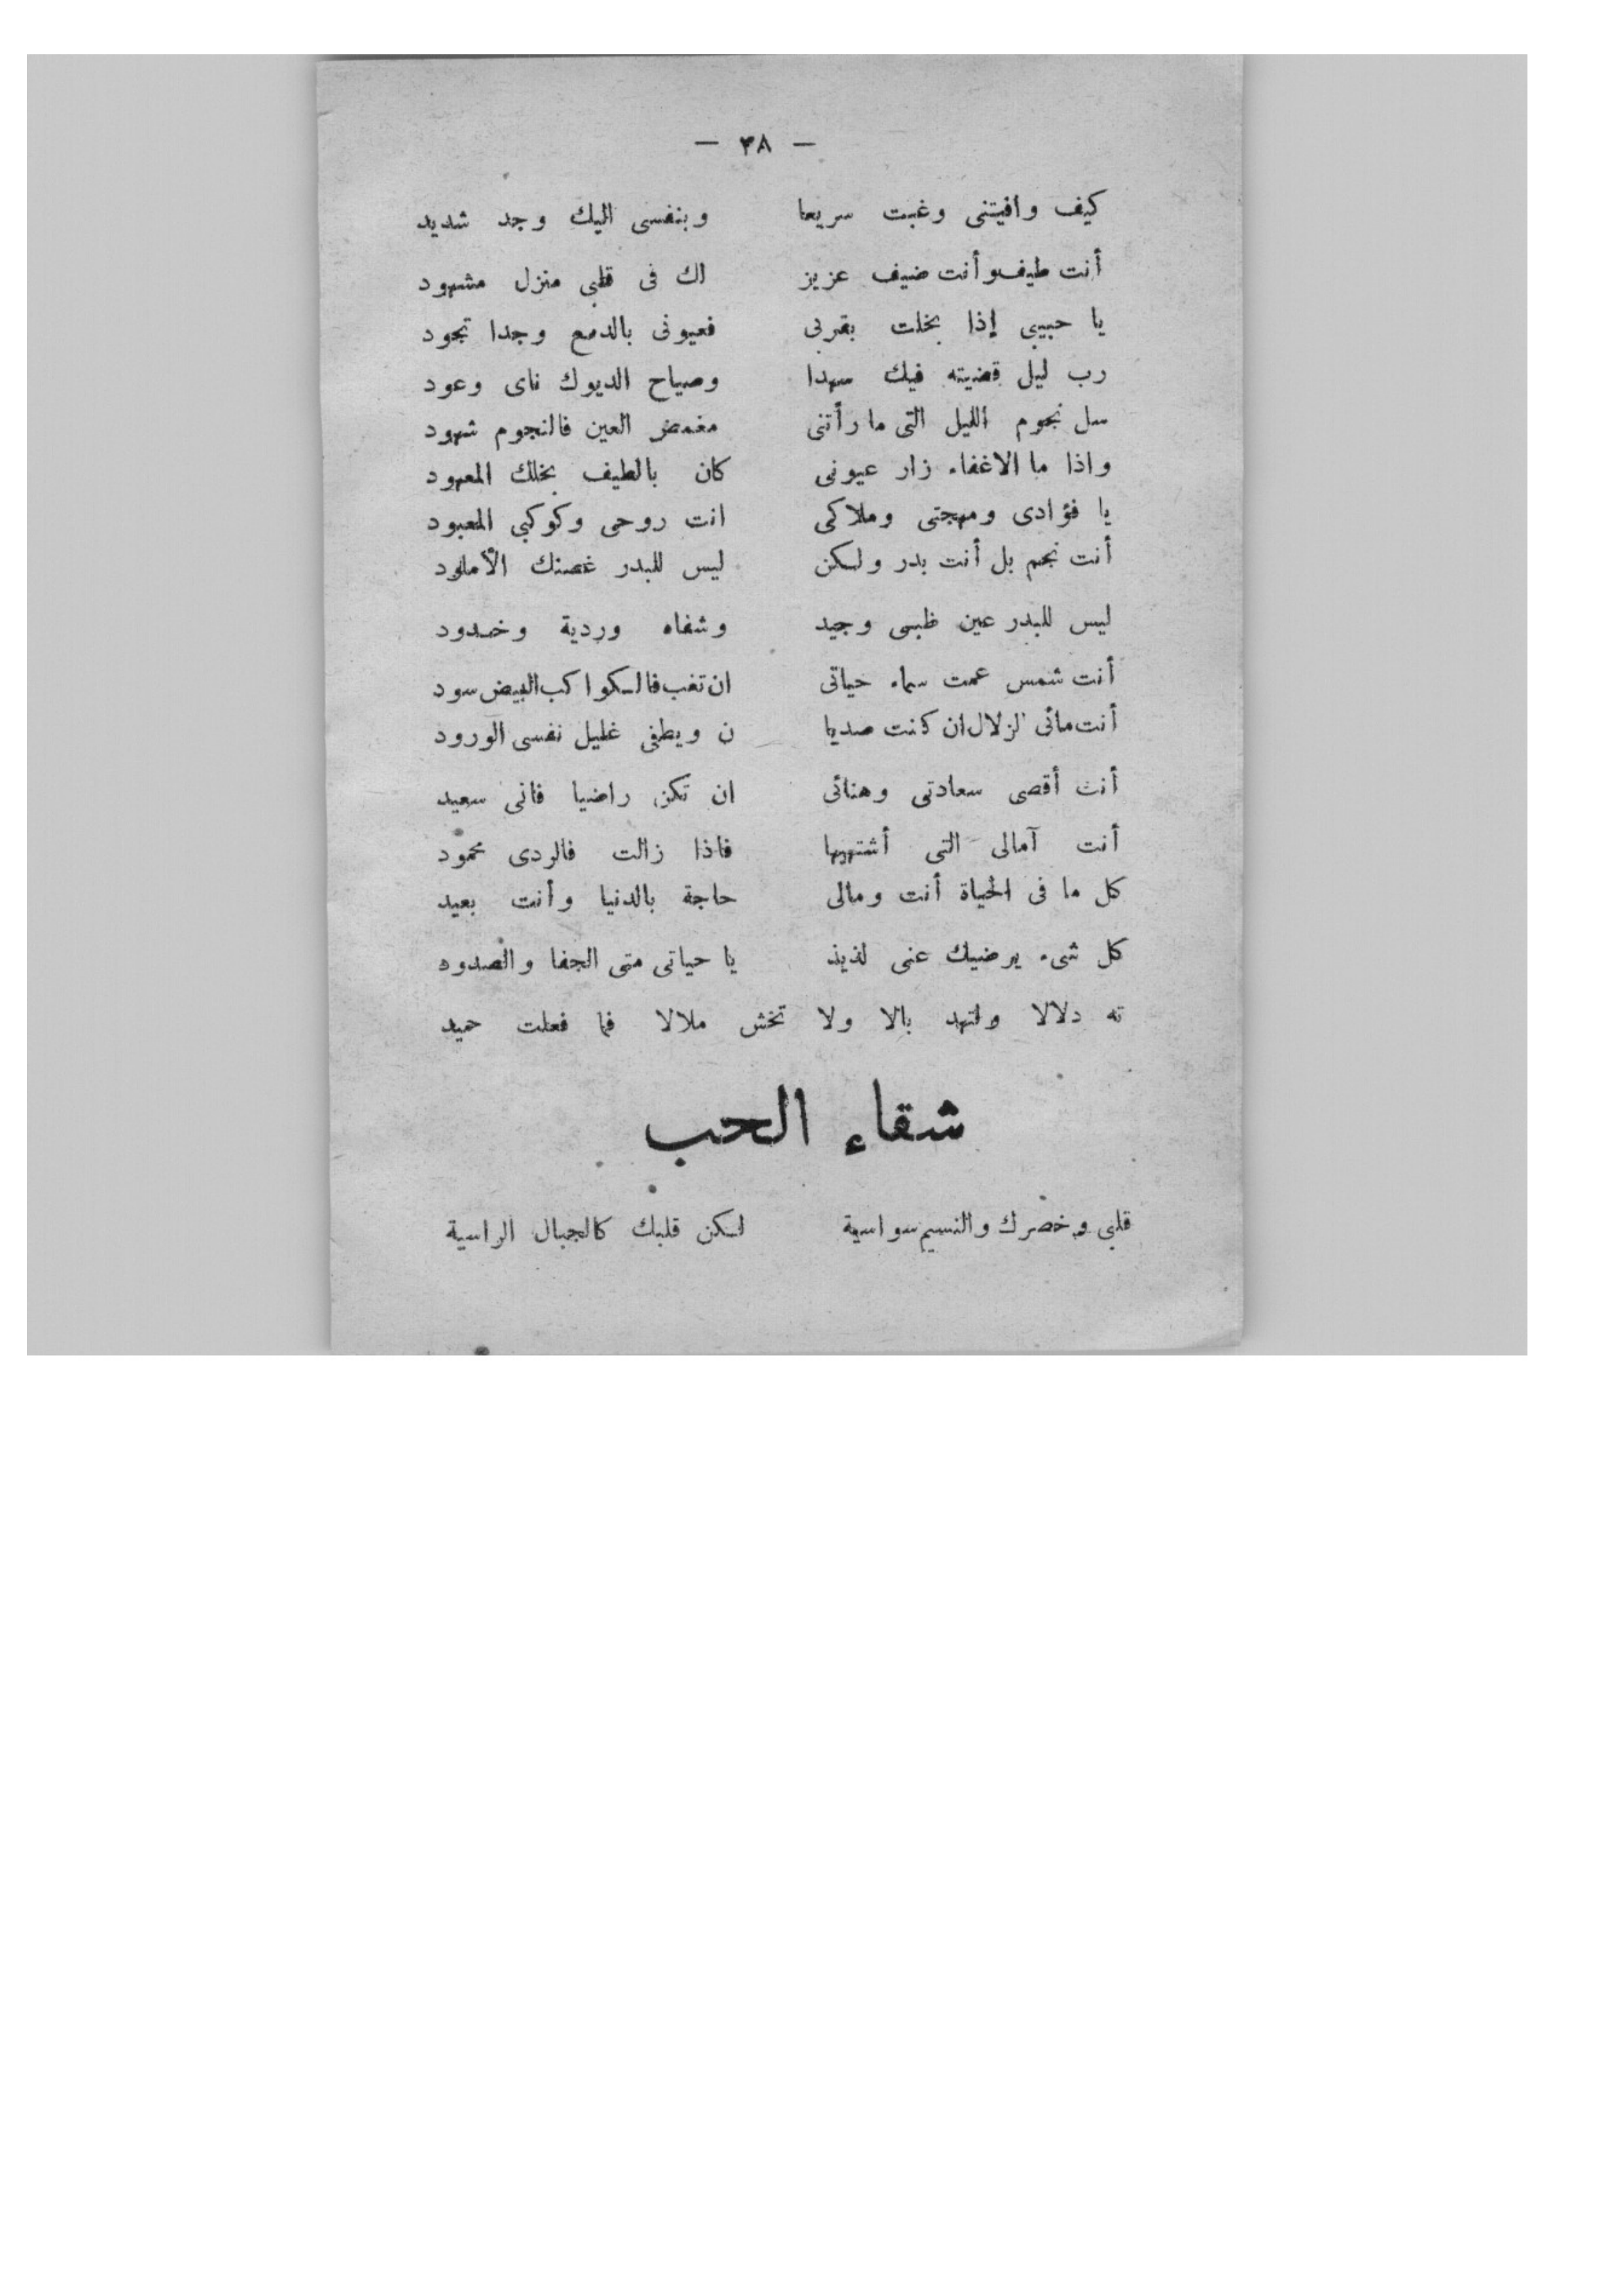 — ٣٨ —
كيف وافيتنى وغبت سريعا وبنفسى اليك وجد شديد
أنت طيف وأنت ضيف عزيز لك فى قلبى منزل مشهود
يا حبيبى إذا بخلت بقربى فعيونى بالدمع وجدا تجود
رب ليل قضيته فيك سهدا وصياح الديوك ناى وعود
سل نجوم الليل التى ما رأتنى مغمض العين فالنجوم شهود
واذا ما الاغفاء زار عيونى كان بالطيف بخلك المعهود
يا فؤادى ومهجتى وملاكى انت روحى وكوكبي المعبود
أنت نجم بل أنت بدر ولكن ليس للبدر غصنك الأملود
ليس للبدر عين ظبى وجيد وشفاه وردية وخدود
أنت شمس عمت سماء حياتى ان تغب فالكواكب البيض سود
أنت مائى الزلال ان كنت صديا ن ويطفى غليل نفسى الورود
أنت أقصى سعادتى وهنائى ان تكن راضيا فانى سعيد
أنت آمالى التى أشتهيها فاذا زالت فالردى محمود
كل ما فى الحياة أنت ومالى حاجة بالدنيا وأنت بعيد
كل شىء يرضيك عنى لذيذ يا حياتى متى الجفا والصدود
ته دلالا ولتهد بالا ولا تخش ملالا فما فعلت حميد
شقاء الحب
قلبى وخصرك والنسيم سواسية لكن قلبك كالجبال الراسية